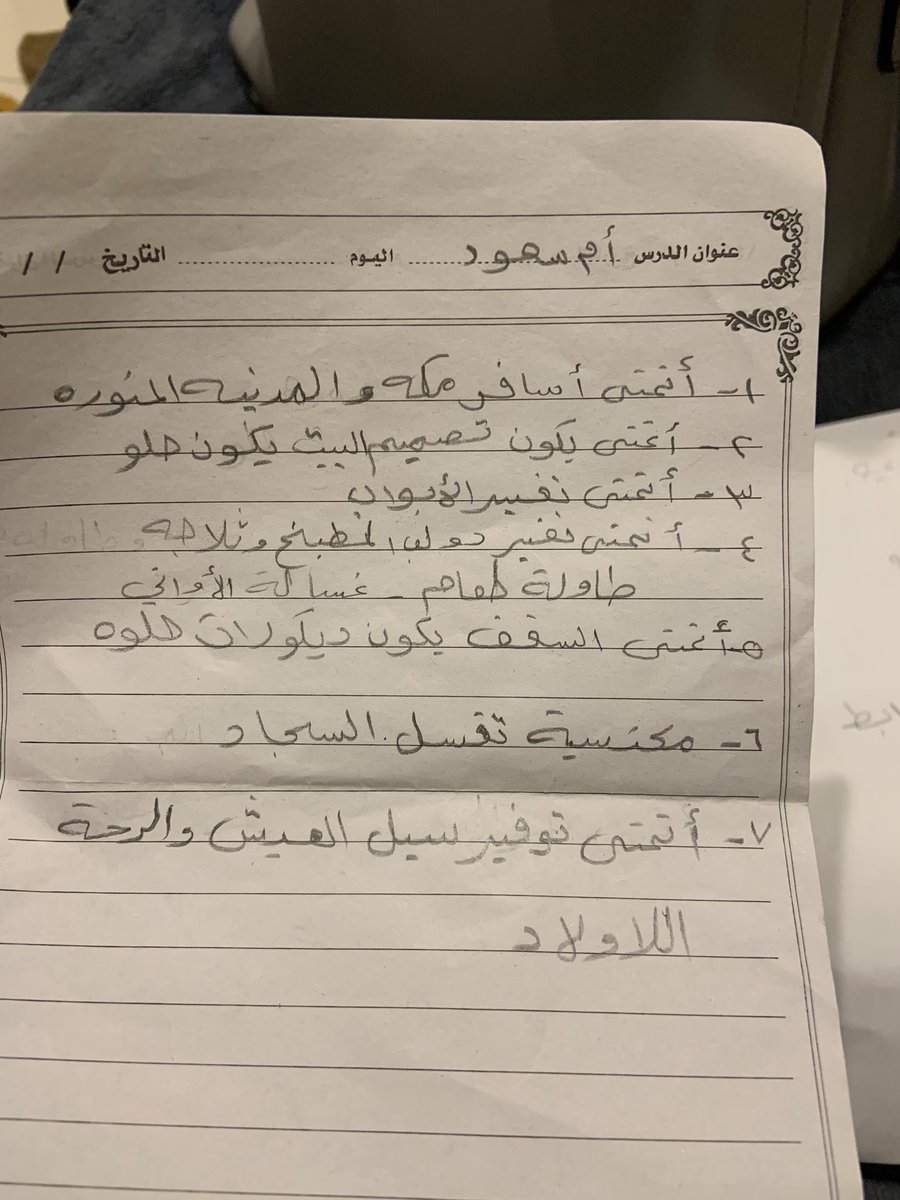 عنوان الدرس أم سعود اليوم التاريخ / /
١- أتمنى أسافر مكه والمدنيه المنوره
٢- أتمنى يكون تصميم البيت يكون حلو
٣- أتمنى تغيير الأبواب
٤- أتمنى تغير دولاب المطبخ وثلاجه
طاولة طعام - غسالة الأواني
٥- أتمنى السقف يكون ديكورات حلوه
٦- مكنسية تغسل السجاد
٧- أتمنى توفير سبل العيش والرحة
اللاولاد